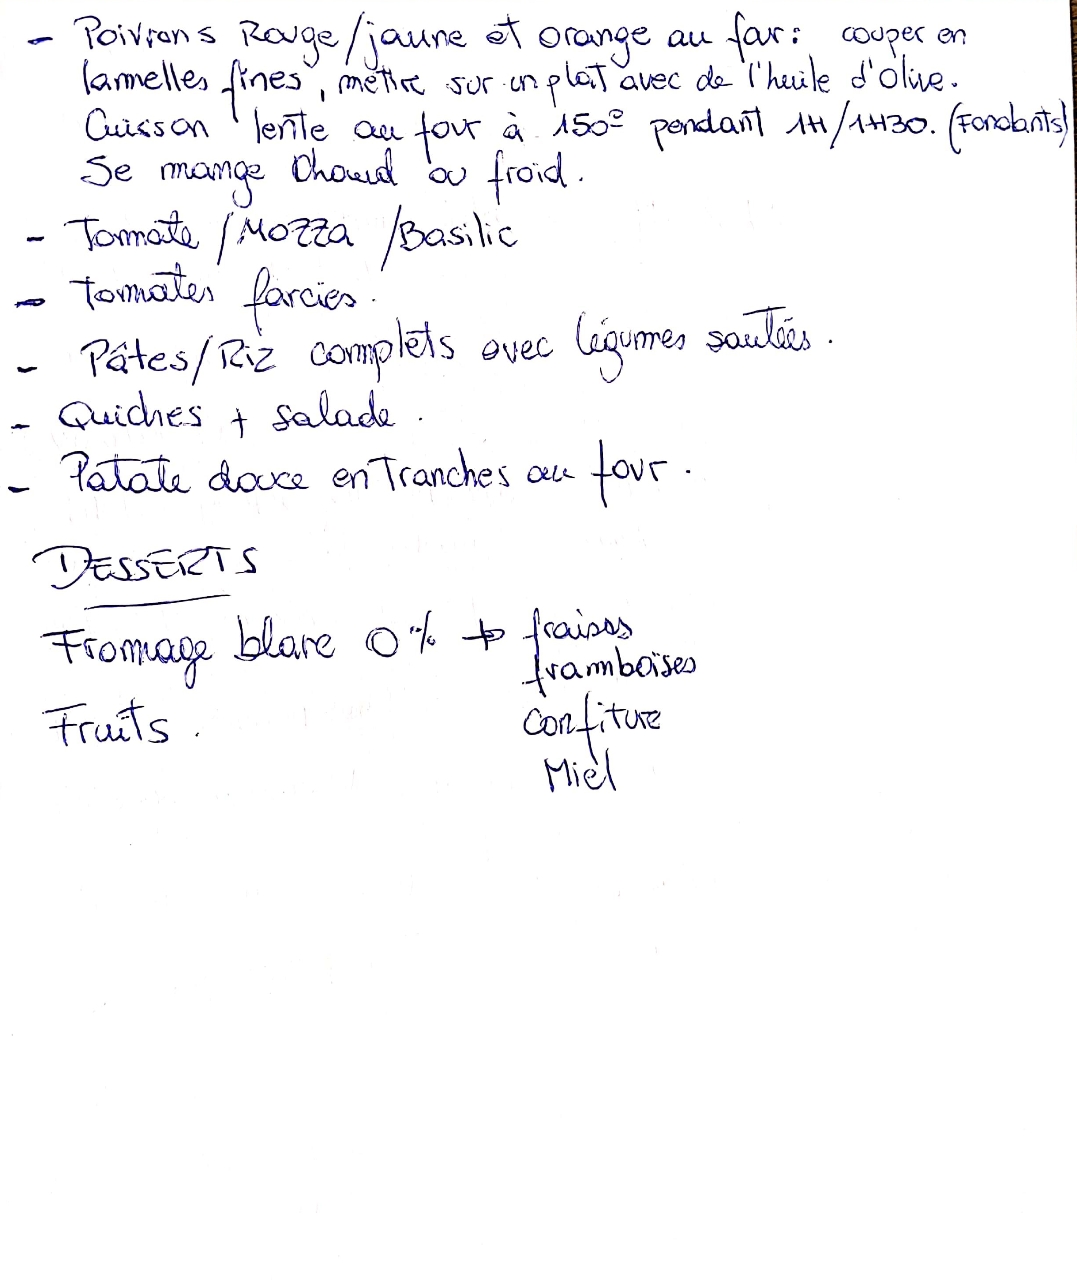 - Poivrons Rouge/jaune et orange au four : couper en
lamelles fines, mettre sur un plat avec de l'huile d'olive.
Cuisson lente au four à 150° pendant 1H/1H30. (Fondants)
Se mange Chaud ou froid.
- Tomate / Mozza / Basilic
- Tomates farcies.
- Pâtes/Riz complets avec légumes sautées.
- Quiches + Salade.
- Patate douce en Tranches au four.
DESSERTS
Fromage blanc 0% + fraises
framboises
Fruits. Confiture
Miel